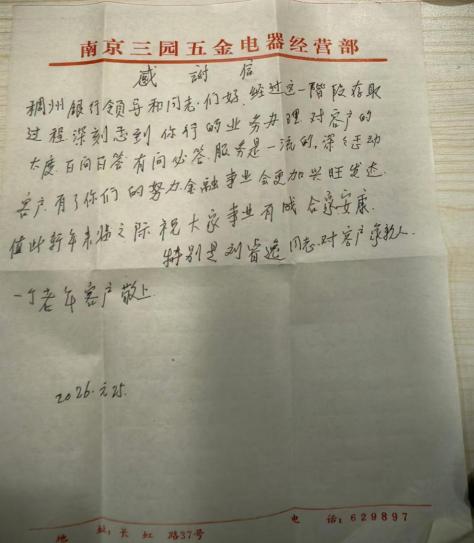 南京三园五金电器经营部
感謝信
稠州银行领导和同志们好.经过这一阶段存取
过程深刻感到你行的业务办理对客户的
太度百问百答有问必答.服务是一流的,深深感动
客户.有了你们的努力金融事业会更加兴旺发达.
值此新年来临之际祝大家事业有成合家安康.
特别是刘睿逸同志.对客户象亲人.
一个老年客户敬上
2026.元25.
地 址:长虹路37号
电 话:629897